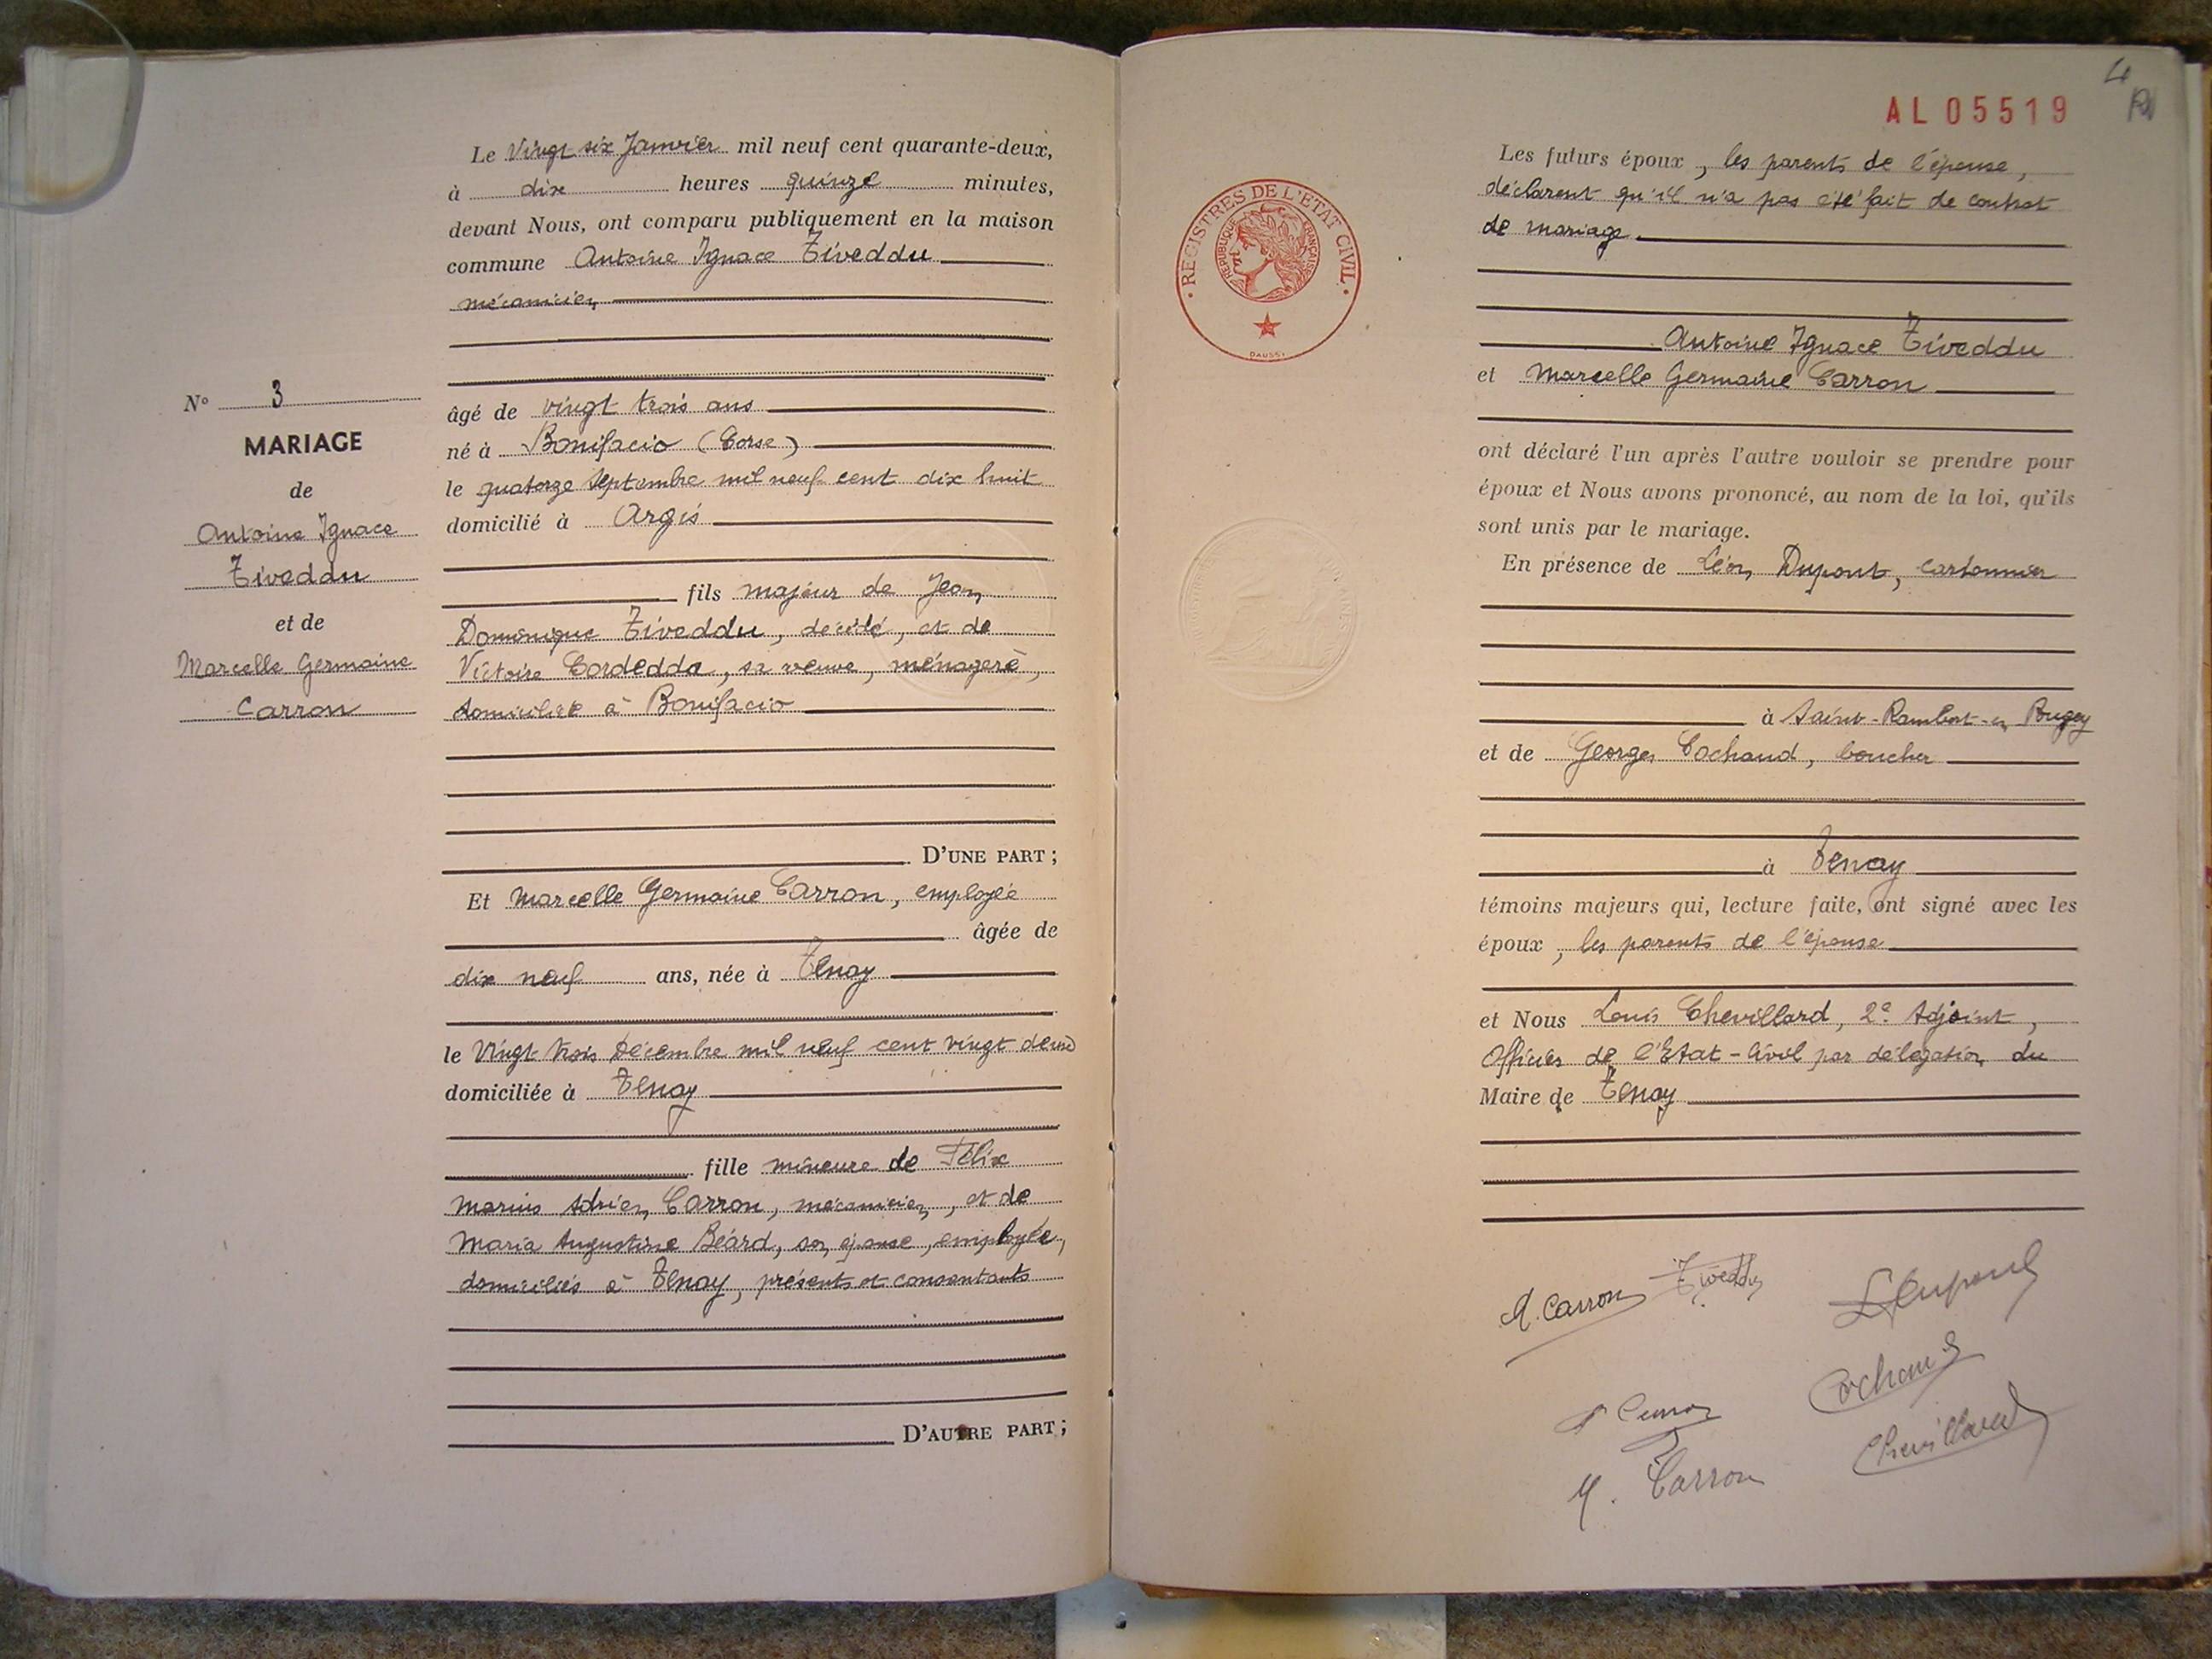 Le Vingt six Janvier mil neuf cent quarante-deux,
à dix heures quinze minutes,
devant Nous, ont comparu publiquement en la maison
commune Antoine Ignace Tiveddu
mécanicien
N° 3
MARIAGE
de
Antoine Ignace
Tiveddu
et de
Marcelle Germaine
Carron
âgé de vingt trois ans
né à Bonifacio (Corse)
le quatorze septembre mil neuf cent dix huit
domicilié à Argis
fils majeur de Jean
Dominique Tiveddu, décédé, et de
Victoire Cordedda, sa veuve, ménagère,
domiciliée à Bonifacio
D'UNE PART ;
Et Marcelle Germaine Carron, employée
âgée de
dix neuf ans, née à Tenay
le Vingt trois Décembre mil neuf cent vingt deux
domiciliée à Tenay
fille mineure de Félix
Marius Adrien Carron, mécanicien, et de
Maria Augustine Béard, son épouse, employée,
domiciliés à Tenay, présents et consentants
D'AUTRE PART ;
AL 05519
4
REGISTRES DE L'ETAT CIVIL
REPUBLIQUE FRANÇAISE
Les futurs époux, les parents de l'épouse,
déclarent qu'il n'a pas été fait de contrat
de mariage.
Antoine Ignace Tiveddu
et Marcelle Germaine Carron
ont déclaré l'un après l'autre vouloir se prendre pour
époux et Nous avons prononcé, au nom de la loi, qu'ils
sont unis par le mariage.
En présence de Léon Dupont, cartonnier
à Saint-Rambert-en Bugey
et de Georges Cochand, boucher
à Tenay
témoins majeurs qui, lecture faite, ont signé avec les
époux, les parents de l'épouse
et Nous Louis Chevillard, 2e Adjoint,
Officier de l'Etat-Civil par délégation du
Maire de Tenay
M. Carron Tiveddu
LDupont
Cochand
Chevillard
M. Carron